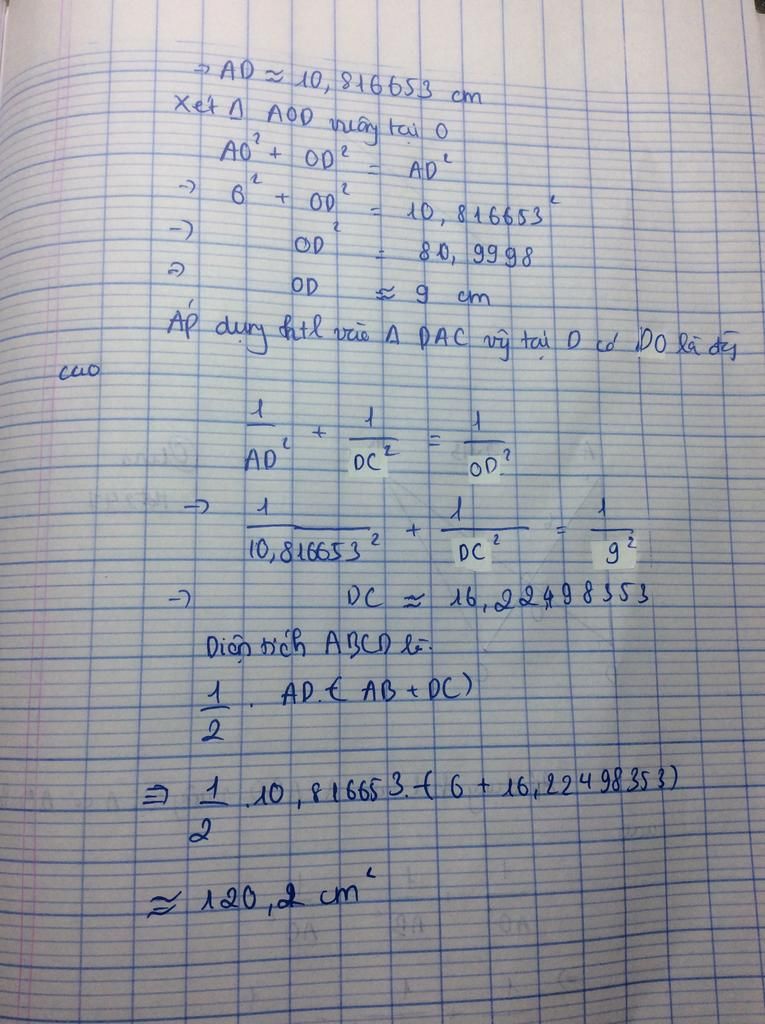 ⇒ AD ≈ 10,816653 cm
Xét Δ AOD vuông tại O
AO² + OD² = AD²
⇒ 6² + OD² = 10,816653²
⇒ OD² = 80,9998
⇒ OD ≈ 9 cm
Áp dụng htl vào Δ DAC vg tại D có DO là đg
cao
1/AD² + 1/DC² = 1/OD²
⇒ 1/10,816653² + 1/DC² = 1/9²
⇒ DC ≈ 16,22498353
Diện tích ABCD là:
1/2 . AD.( AB + DC)
⇒ 1/2 .10,816653.( 6 + 16,22498353)
≈ 120,2 cm²